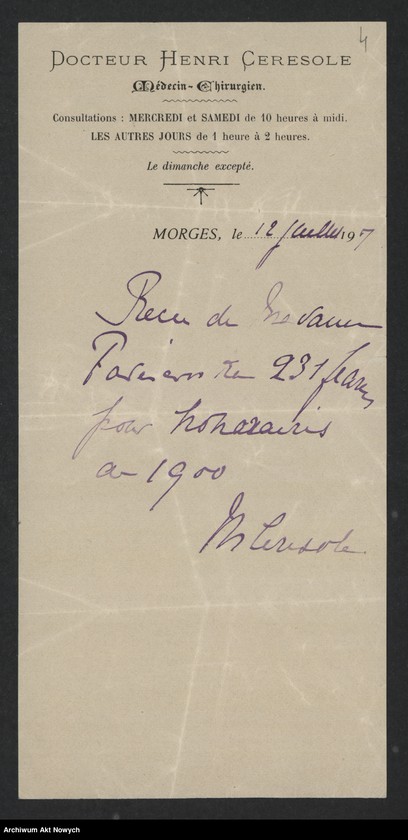 4
DOCTEUR HENRI CERESOLE
Médecin-Chirurgien.
Consultations : MERCREDI et SAMEDI de 10 heures à midi.
LES AUTRES JOURS de 1 heure à 2 heures.
Le dimanche excepté.
MORGES, le 12 Juillet 1907
Recu de Madame
231 francs
pour honoraires
de 1900
Ceresole
Archiwum Akt Nowych